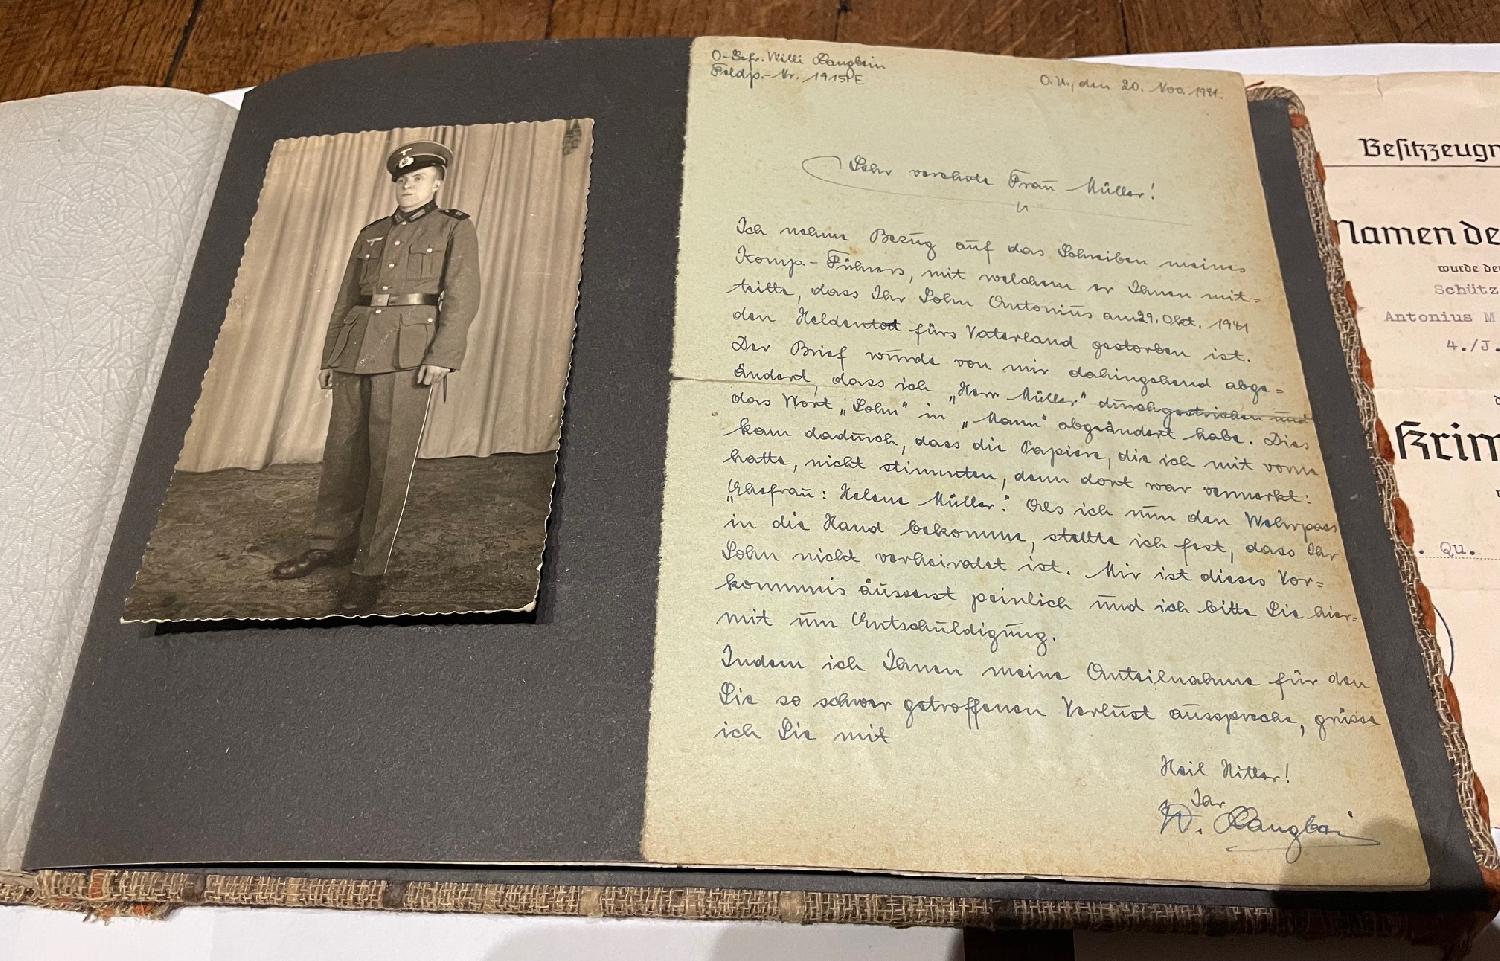 O-Gefr. Willi Langbein
Feldp.-Nr. 19151E
O.U., den 20. Nov. 1941.
Sehr verehrte Frau Müller!
Ich nehme Bezug auf das Schreiben meines
Komp.-Führers, mit welchem er Ihnen mit-
teilte, dass Ihr Sohn Antonius am 29. Okt. 1941
den Heldentod fürs Vaterland gestorben ist.
Der Brief wurde von mir dahingehend abge-
ändert, dass ich „Herr Müller" durchgestrichen und
das Wort „Sohn" in „Mann" abgeändert habe. Dies
kam dadurch, dass die Papiere, die ich mit vorne
hatte, nicht stimmten, denn dort war vermerkt:
„Ehefrau: Helene Müller." Als ich nun den Wehrpass
in die Hand bekomme, stellte ich fest, dass Ihr
Sohn nicht verheiratet ist. Mir ist dieses Vor-
kommnis äusserst peinlich und ich bitte Sie hier-
mit um Entschuldigung.
Indem ich Ihnen meine Anteilnahme für den
Sie so schwer getroffenen Verlust ausspreche, grüsse
ich Sie mit
Heil Hitler!
Ihr
W. Langbein
Besitzzeugn
Namen de
wurde de
Schütz
Antonius M
4./J.
Krim
. Qu.